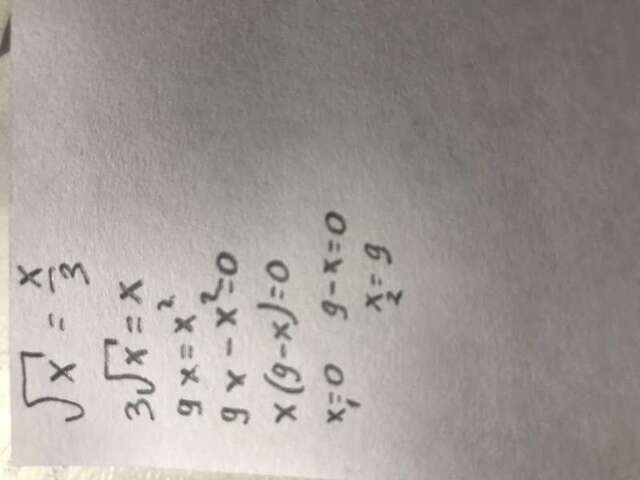 √x = x/3
3√x = x
9x = x²
9x - x² = 0
x(9-x) = 0
x₁ = 0 9-x = 0
x₂ = 9